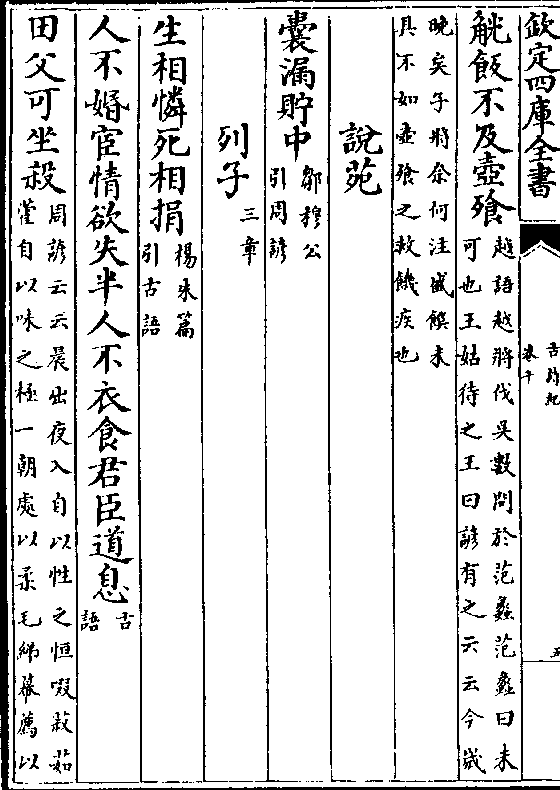 欽定四庫全書
古詩紀
卷十
五
觥飯不及壺飧
越語越將伐吳數問於范蠡范蠡曰未
可也王姑待之王曰諺有之云云今歲
晚矣子將奈何注盛饌未
具不如壺飧之救饑疾也
說苑
囊漏貯中
鄒穆公
引周諺
列子
三章
生相憐死相捐
楊朱篇
引古語
人不婚宦情欲失半人不衣食君臣道息
古
語
田父可坐殺
周諺云云晨出夜入自以性之恒啜菽茹
藿自以味之極一朝處以柔毛綈幕薦以